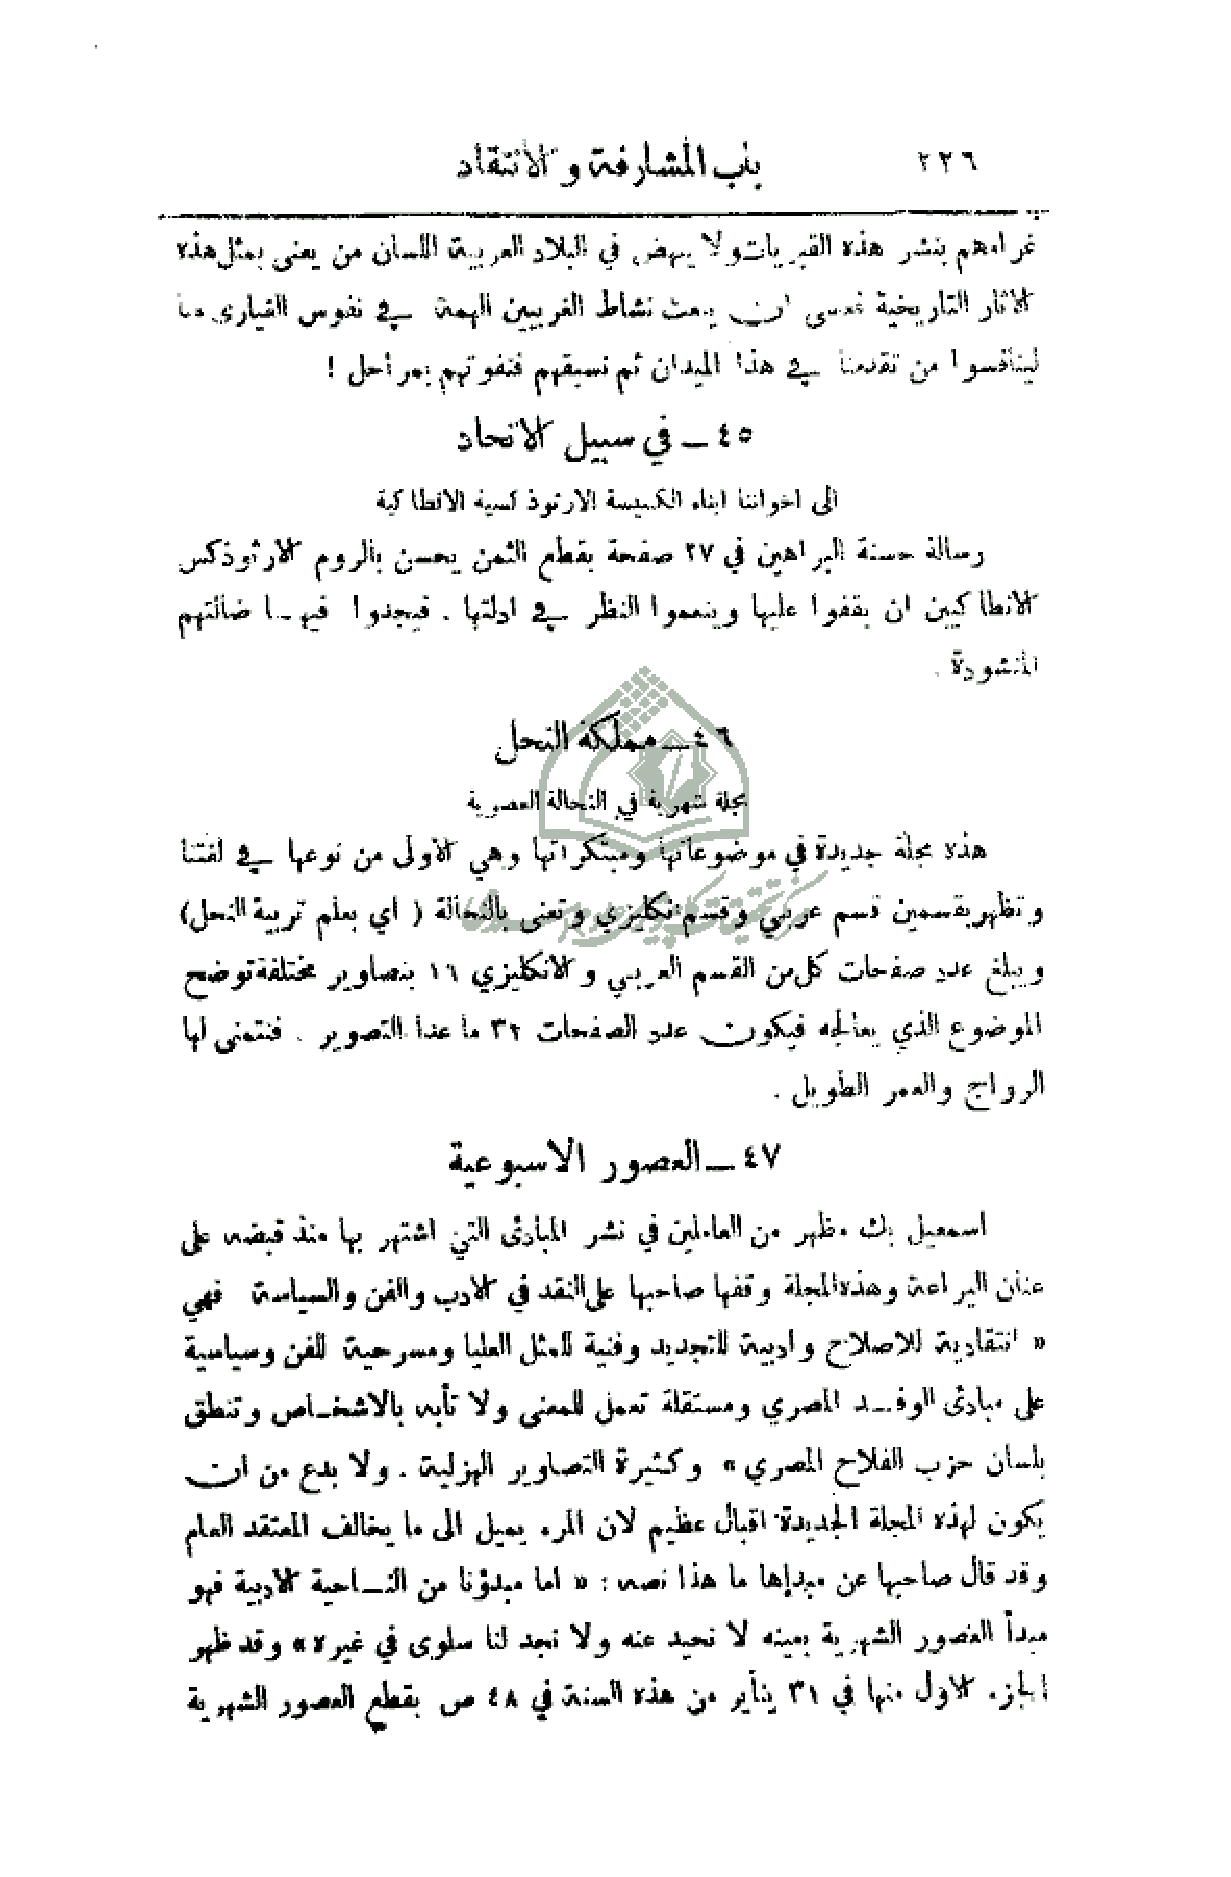 ٢٢٦ باب المشارفة والانتقاد
غرامهم بنشر هذه القبريات ولا ينهض في البلاد العربية اللسان من يعنى بمثل هذه
الاثار التاريخية فعسى ان يبعث نشاط الغربيين الهمة في نفوس الغيارى منا
لينافسوا من تقدمنا في هذا الميدان ثم نسبقهم فنفوتهم بمراحل !
٤٥ ــ في سبيل الاتحاد
الى اخواننا ابناء الكنيسة الارثوذكسية الانطاكية
رسالة حسنة البراهين في ٢٧ صفحة بقطع الثمن يحسن بالروم الارثوذكس
الانطاكيين ان يقفوا عليها وينعموا النظر في ادلتها . فيجدوا فيهـا ضالتهم
المنشودة .
٤٦ ــ مملكة النحل
مجلة شهرية في النحالة العصرية
هذه مجلة جديدة في موضوعاتها ومبتكراتها وهي الاولى من نوعها في لغتنا
وتظهر بقسمين قسم عربي وقسم انكليزي وتعنى بالنحالة ( اي بعلم تربية النحل)
ويبلغ عدد صفحات كل من القسم العربي والانكليزي ١٦ بتصاوير مختلفة توضح
الموضوع الذي يعالجه فيكون عدد الصفحات ٣٢ ما عدا التصوير . فنتمنى لها
الرواج والعمر الطويل .
٤٧ ــ العصور الاسبوعية
اسمعيل بك مظهر من العاملين في نشر المبادئ التي اشتهر بها منذ قبضه على
عنان اليراعة وهذه المجلة وقفها صاحبها على النقد في الادب والفن والسياسة فهي
« انتقادية للاصلاح وادبية للتجديد وفنية للمثل العليا ومسرحية للفن وسياسية
على مبادئ الوفـد المصري ومستقلة تعمل للمعنى ولا تأبه بالاشخـاص وتنطق
بلسان حزب الفلاح المصري » وكثيرة التصاوير الهزلية . ولا بدع من ان
يكون لهذه المجلة الجديدة اقبال عظيم لان المرء يميل الى ما يخالف المعتقد العام
وقد قال صاحبها عن مبدإها ما هذا نصه : « اما مبدؤنا من النـاحية الادبية فهو
مبدأ العصور الشهرية بعينه لا نحيد عنه ولا نجد لنا سلوى في غيره » وقد ظهر
الجزء الاول منها في ٣١ يناير من هذه السنة في ٤٨ ص بقطع العصور الشهرية